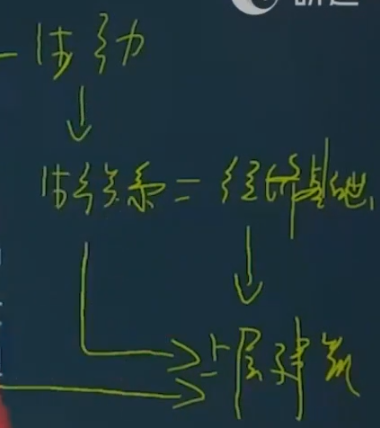 生产力
生产关系 = 经济基础
上层建筑